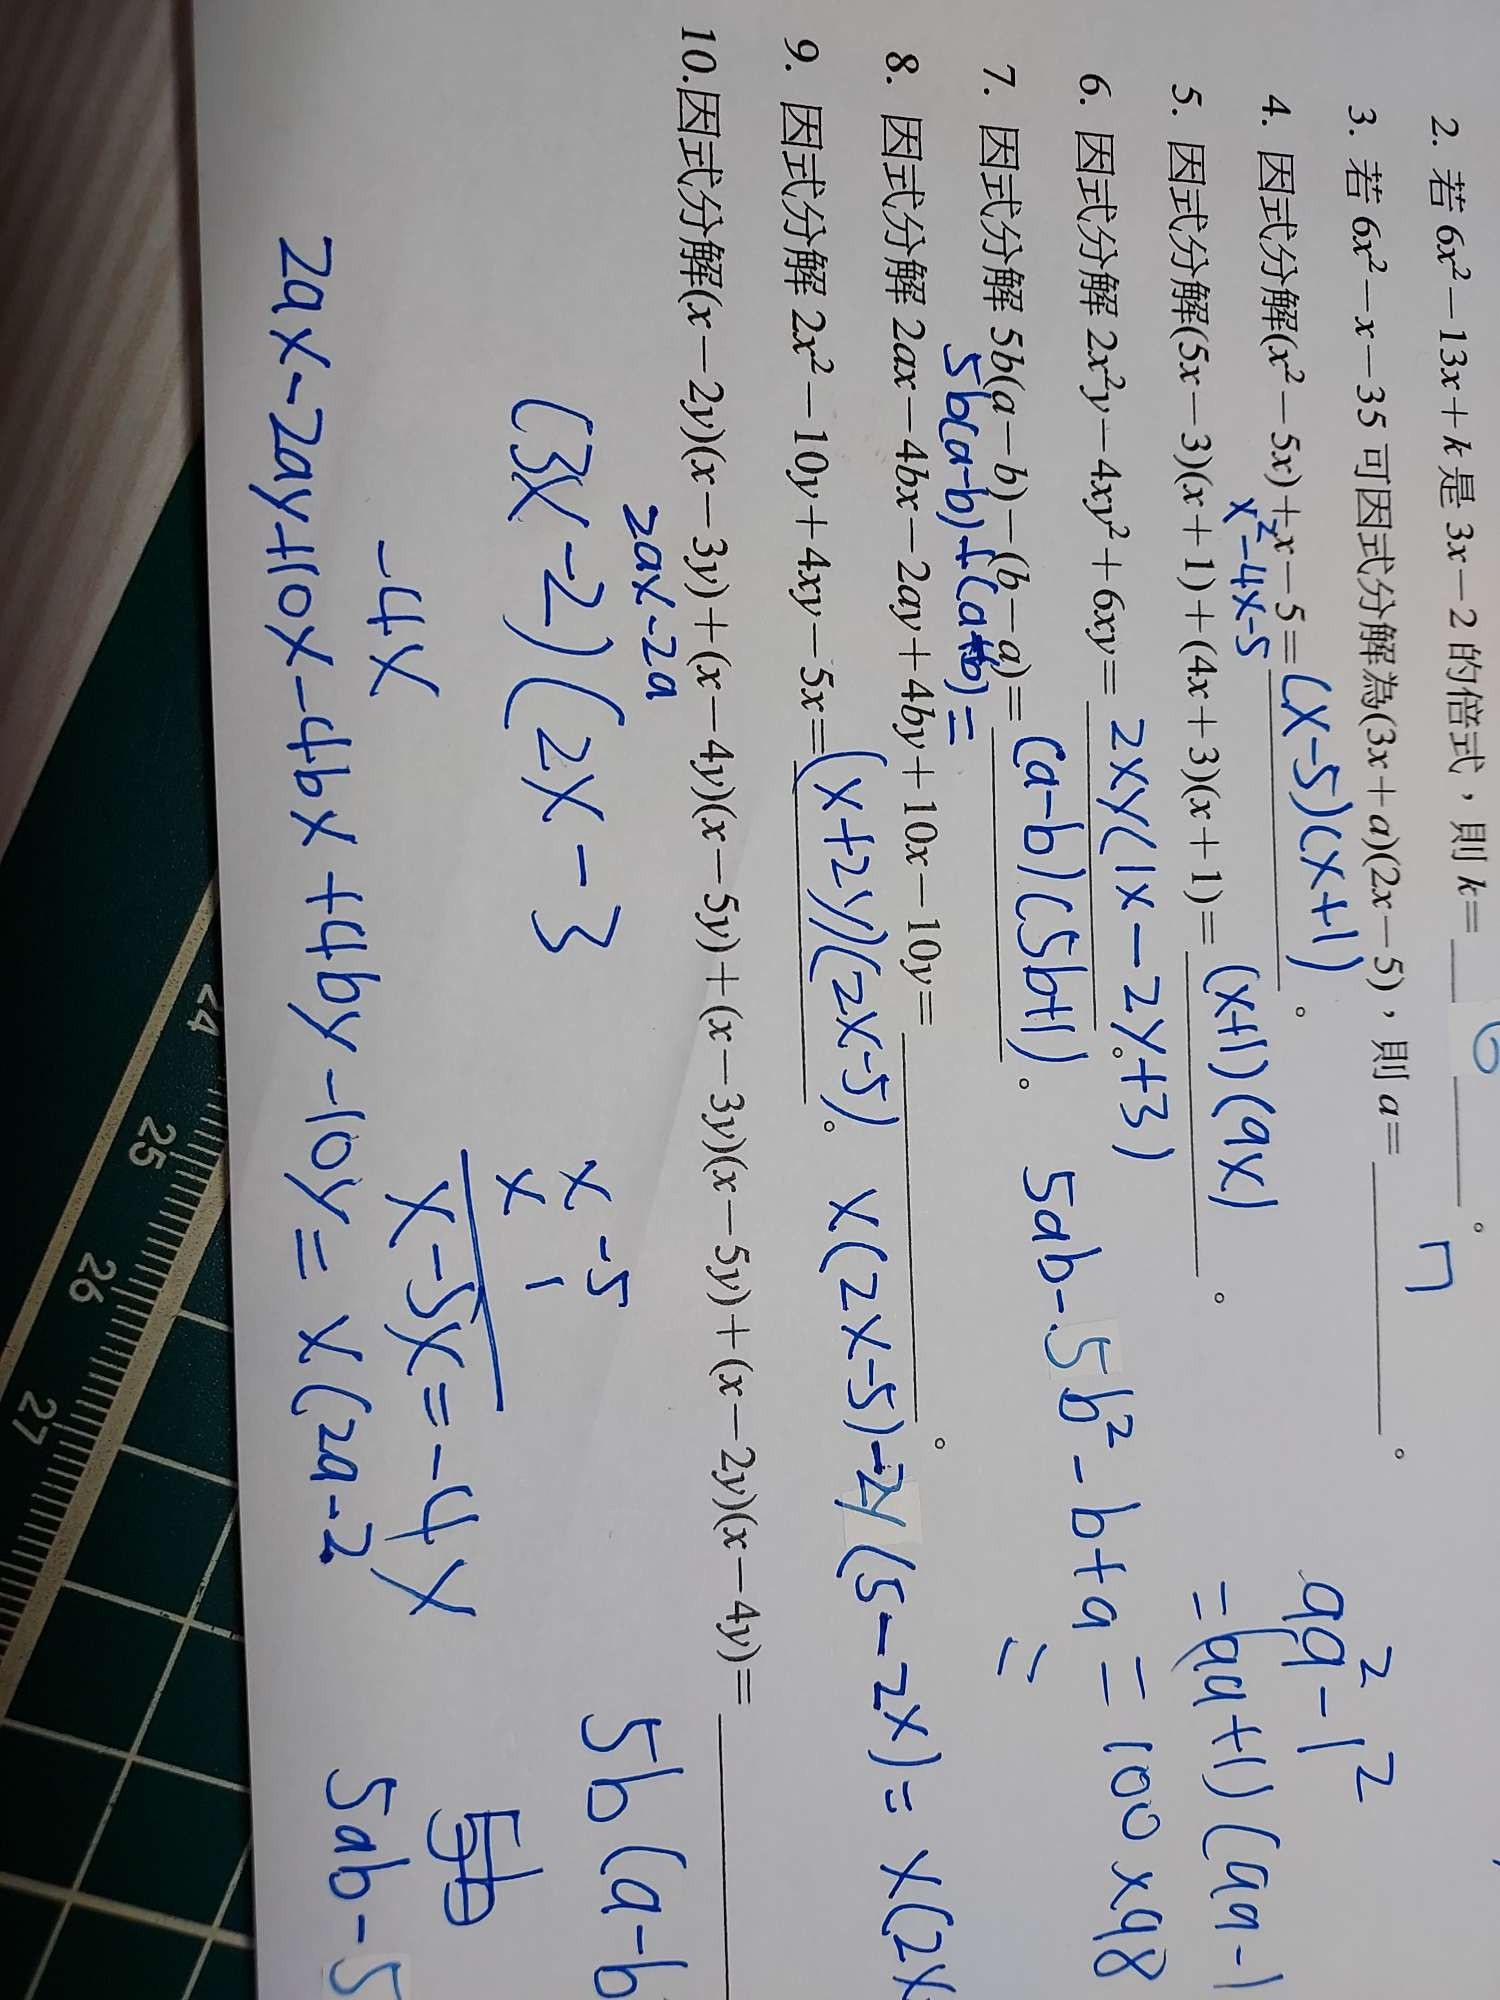 2. 若 6x²－13x＋k 是 3x－2 的倍式，則 k＝ 6 。
3. 若 6x²－x－35 可因式分解為(3x＋a)(2x－5)，則 a＝ 7 。
4. 因式分解(x²－5x)＋x－5＝ (x-5)(x+1) 。
x²-4x-5
99²-1²
5. 因式分解(5x－3)(x＋1)＋(4x＋3)(x＋1)＝ (x+1)(9x) 。
=(99+1)(99-1
6. 因式分解 2x²y－4xy²＋6xy＝ 2xy(1x-2y+3) 。
5ab-5b²-b+a = 100×98
7. 因式分解 5b(a－b)－(b－a)＝ (a-b)(5b+1) 。
=
5b(a-b)+(a-b)=
8. 因式分解 2ax－4bx－2ay＋4by＋10x－10y＝ 。
9. 因式分解 2x²－10y＋4xy－5x＝ (x+2y)(2x-5) 。
x(2x-5)-2y(5-2x)= x(2x
10.因式分解(x－2y)(x－3y)＋(x－4y)(x－5y)＋(x－3y)(x－5y)＋(x－2y)(x－4y)＝
2ax-2a
5b(a-b
(3x-2)(2x-3
x -5
x 1
x-5x=-4x
-4x
5ab-5
2ax-2ay+10x-4bx+4by-10y= x(2a-2